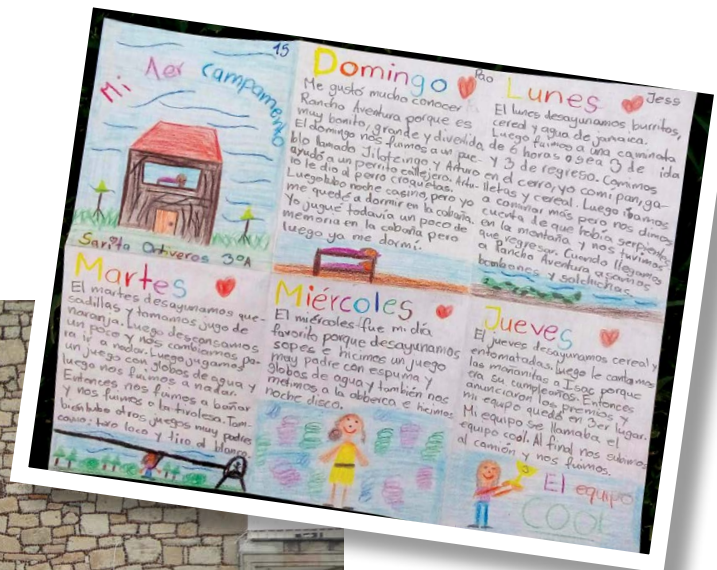 15
Mi 1er campamento
Sarita Ontiveros 3ºA
Domingo
Pao
Me gustó mucho conocer
Rancho Aventura porque es
muy bonito, grande y divertida
El domingo nos fuimos a un pue-
blo llamado Jilotzingo y Arturo
ayudó a un perrito callejero. Artu-
ro le dio al perro croquetas.
Luego hubo noche casino, pero yo
me quedé a dormir en la cabaña.
Yo jugué todavía un poco de
memoria en la cabaña pero
luego ya me dormí.
Lunes
Jess
El lunes desayunamos burritos,
cereal y agua de jamaica.
Luego fuimos a una caminata
de 6 horas o sea 3 de ida
y 3 de regreso. Comimos
en el cerro, yo comí pan, ga-
lletas y cereal. Luego íbamos
a caminar más pero nos dimos
cuenta de que había serpientes
en la montaña y nos tuvimos
que regresar. Cuando llegamos
a Rancho Aventura asamos
bombones y salchichas.
Martes
El martes desayunamos que-
sadillas y tomamos jugo de
naranja. Luego descansamos
un poco y nos cambiamos pa-
ra ir a nadar. Luego jugamos
un juego con globos de agua y
luego nos fuimos a nadar.
Entonces nos fuimos a bañar
y nos fuimos a la tirolesa. Tam-
bién hubo otros juegos muy padres
como: toro loco y tiro al blanco.
Miércoles
El miércoles fue mi día
favorito porque desayunamos
sopes e hicimos un juego
muy padre con espuma y
globos de agua y también nos
metimos a la abberca e hicimos
noche disco.
Jueves
El jueves desayunamos cereal y
entomatadas. Luego le cantamos
las mañanitas a Isac porque
era su cumpleaños. Entonces
anunciaron los premios y
mi equipo quedó en 3er lugar.
Mi equipo se llamaba el
equipo cool. Al final nos subimos
al camión y nos fuimos.
El equipo
COOL